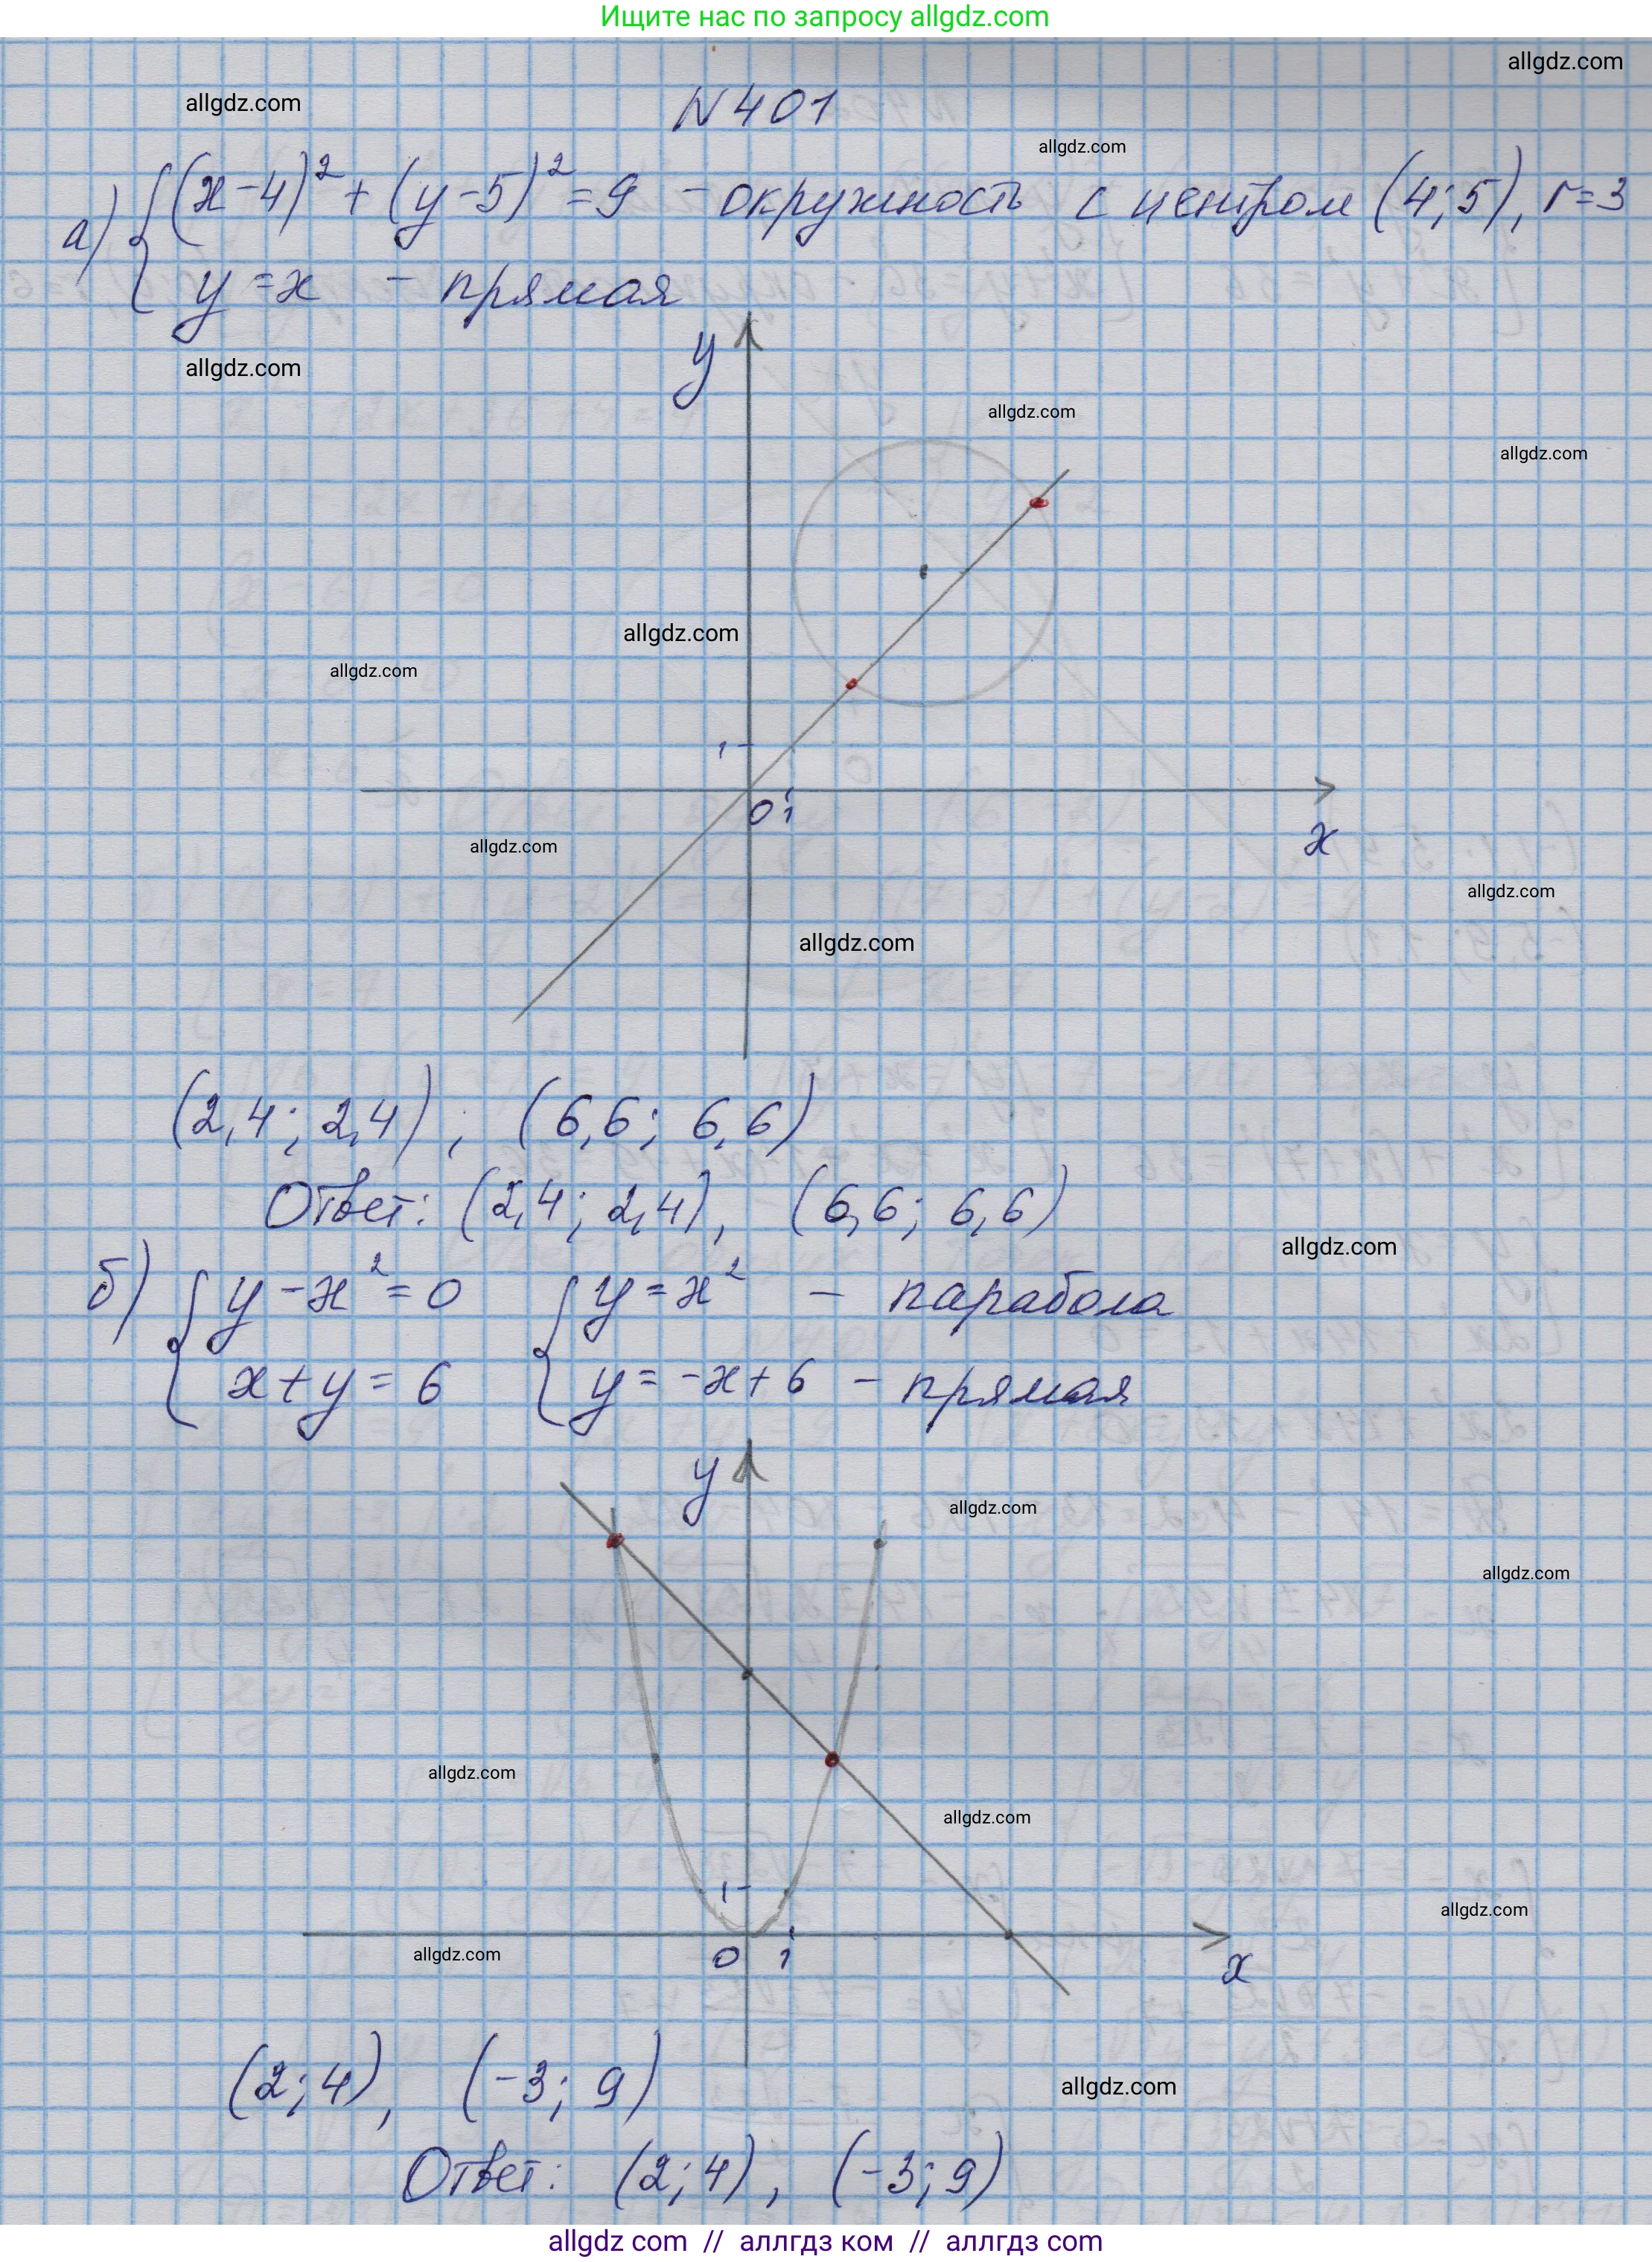 Ищите нас по запросу allgdz.com
allgdz.com
allgdz.com
N 401
allgdz.com
а) { (x-4)² + (y-5)² = 9 - окружность с центром (4; 5), r=3
y = x - прямая
allgdz.com
y
allgdz.com
allgdz.com
allgdz.com
allgdz.com
1
0 1
x
allgdz.com
allgdz.com
allgdz.com
(2,4; 2,4), (6,6; 6,6)
Ответ: (2,4; 2,4), (6,6; 6,6)
allgdz.com
б) { y - x² = 0 { y = x² - парабола
x + y = 6 y = -x + 6 - прямая
y
allgdz.com
allgdz.com
allgdz.com
allgdz.com
1
allgdz.com
0 1
x
allgdz.com
(2; 4), (-3; 9)
allgdz.com
Ответ: (2; 4), (-3; 9)
allgdz com // аллгдз ком // аллгдз com